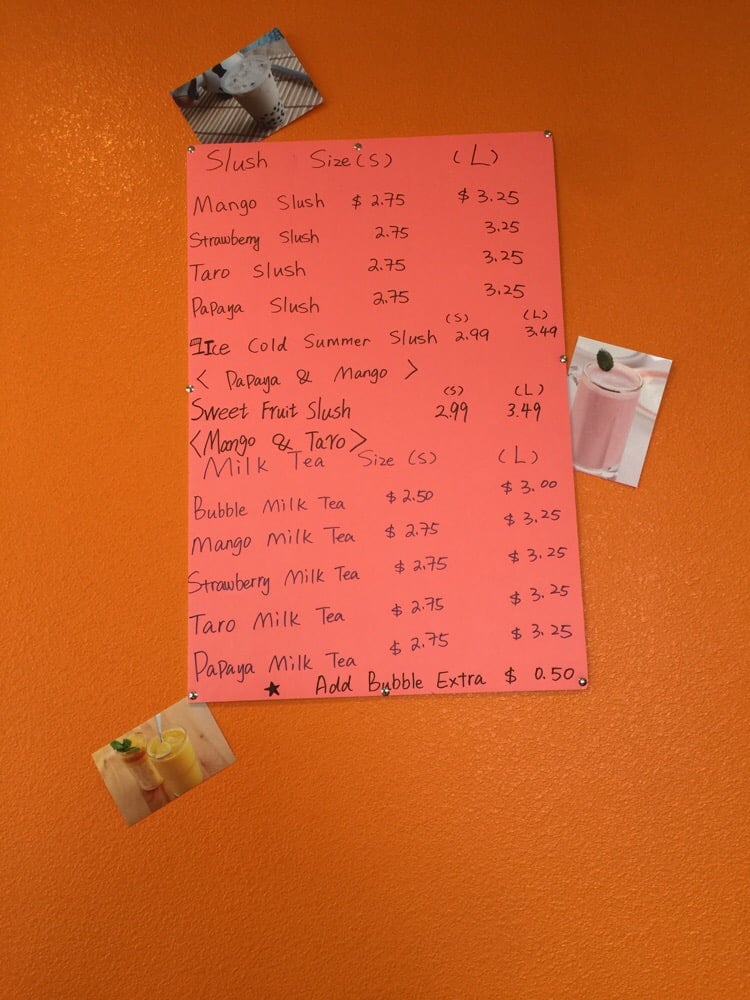 Slush Size (S) (L)
Mango Slush $ 2.75 $ 3.25
Strawberry Slush 2.75 3.25
Taro Slush 2.75 3.25
Papaya Slush 2.75 3.25
(S) (L)
Ice Cold Summer Slush 2.99 3.49
< Papaya & Mango >
(S) (L)
Sweet Fruit Slush 2.99 3.49
<Mango & Taro>
Milk Tea Size (S) (L)
Bubble Milk Tea $ 2.50 $ 3.00
Mango Milk Tea $ 2.75 $ 3.25
Strawberry Milk Tea $ 2.75 $ 3.25
Taro Milk Tea $ 2.75 $ 3.25
Papaya Milk Tea $ 2.75 $ 3.25
★ Add Bubble Extra $ 0.50